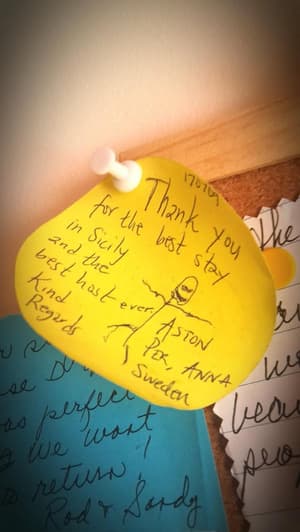 170709
Thank you
for the best stay
in Sicily
and the
best host ever
Kind
Regards
ASTON
PER, ANNA
Sweden
perfect
we want
to return!
Rod & Sandy
the